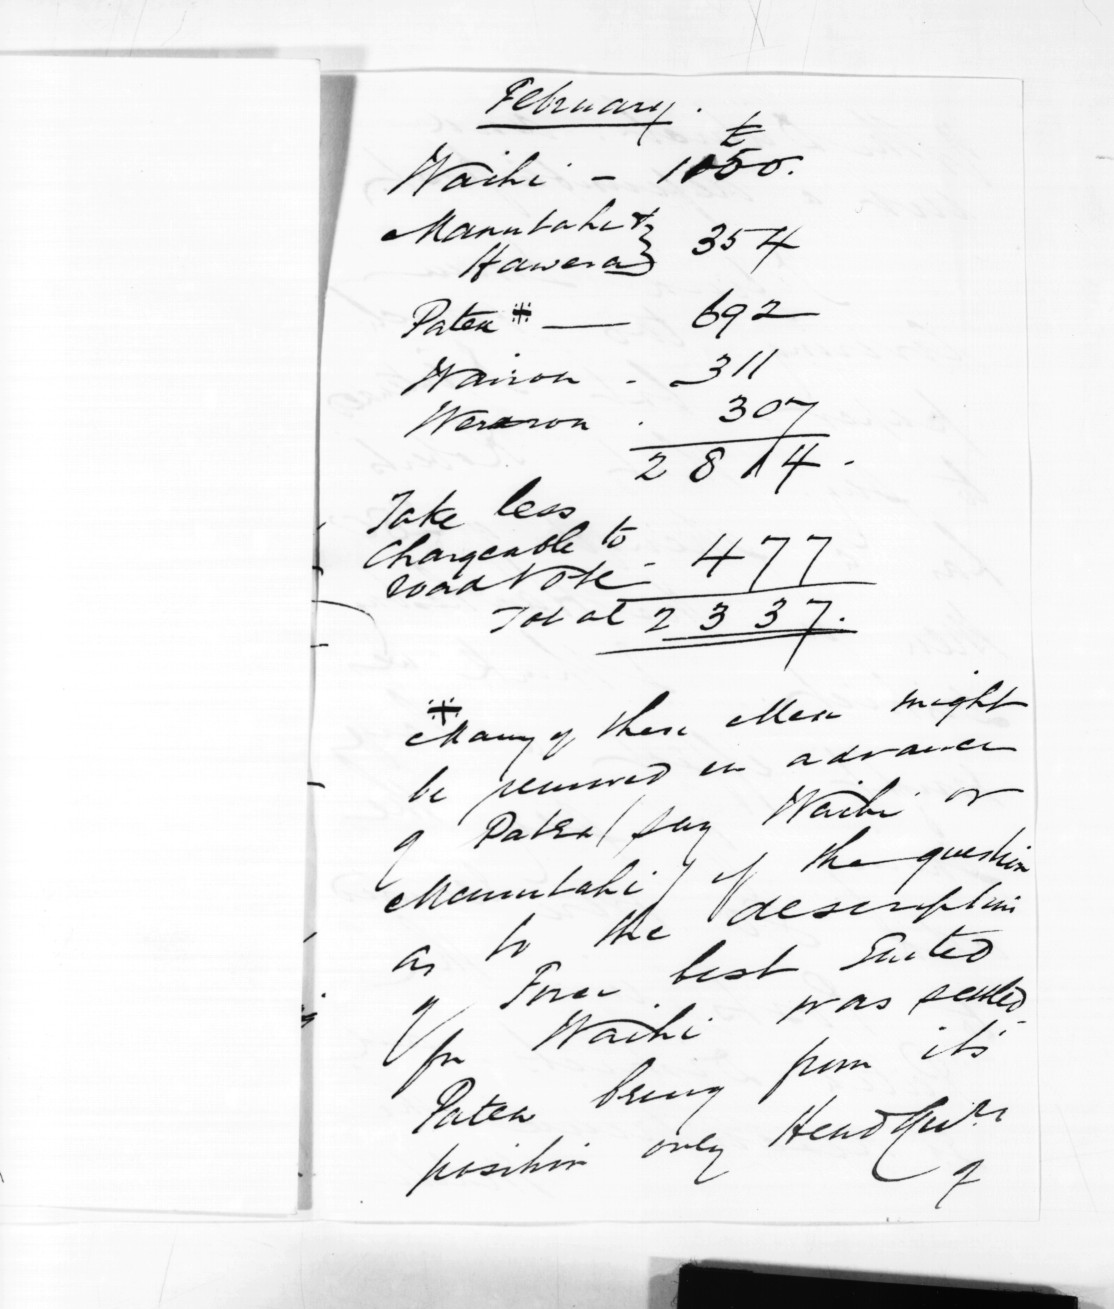 February.
£
Waihi - 1150.
Manutahi &
Hawera } 354
Patea # — 692
Wairoa . 311
Weraroa . 307
2814.
Take less
chargeable to
road Vote - 477
Total 2337.
# Many of these Men might
be removed in advance
of Patea (say Waihi or
Manutahi) if the question
as to the description
of Force best suited
for Waihi was settled
Patea being from its
position only Head Qurs
of